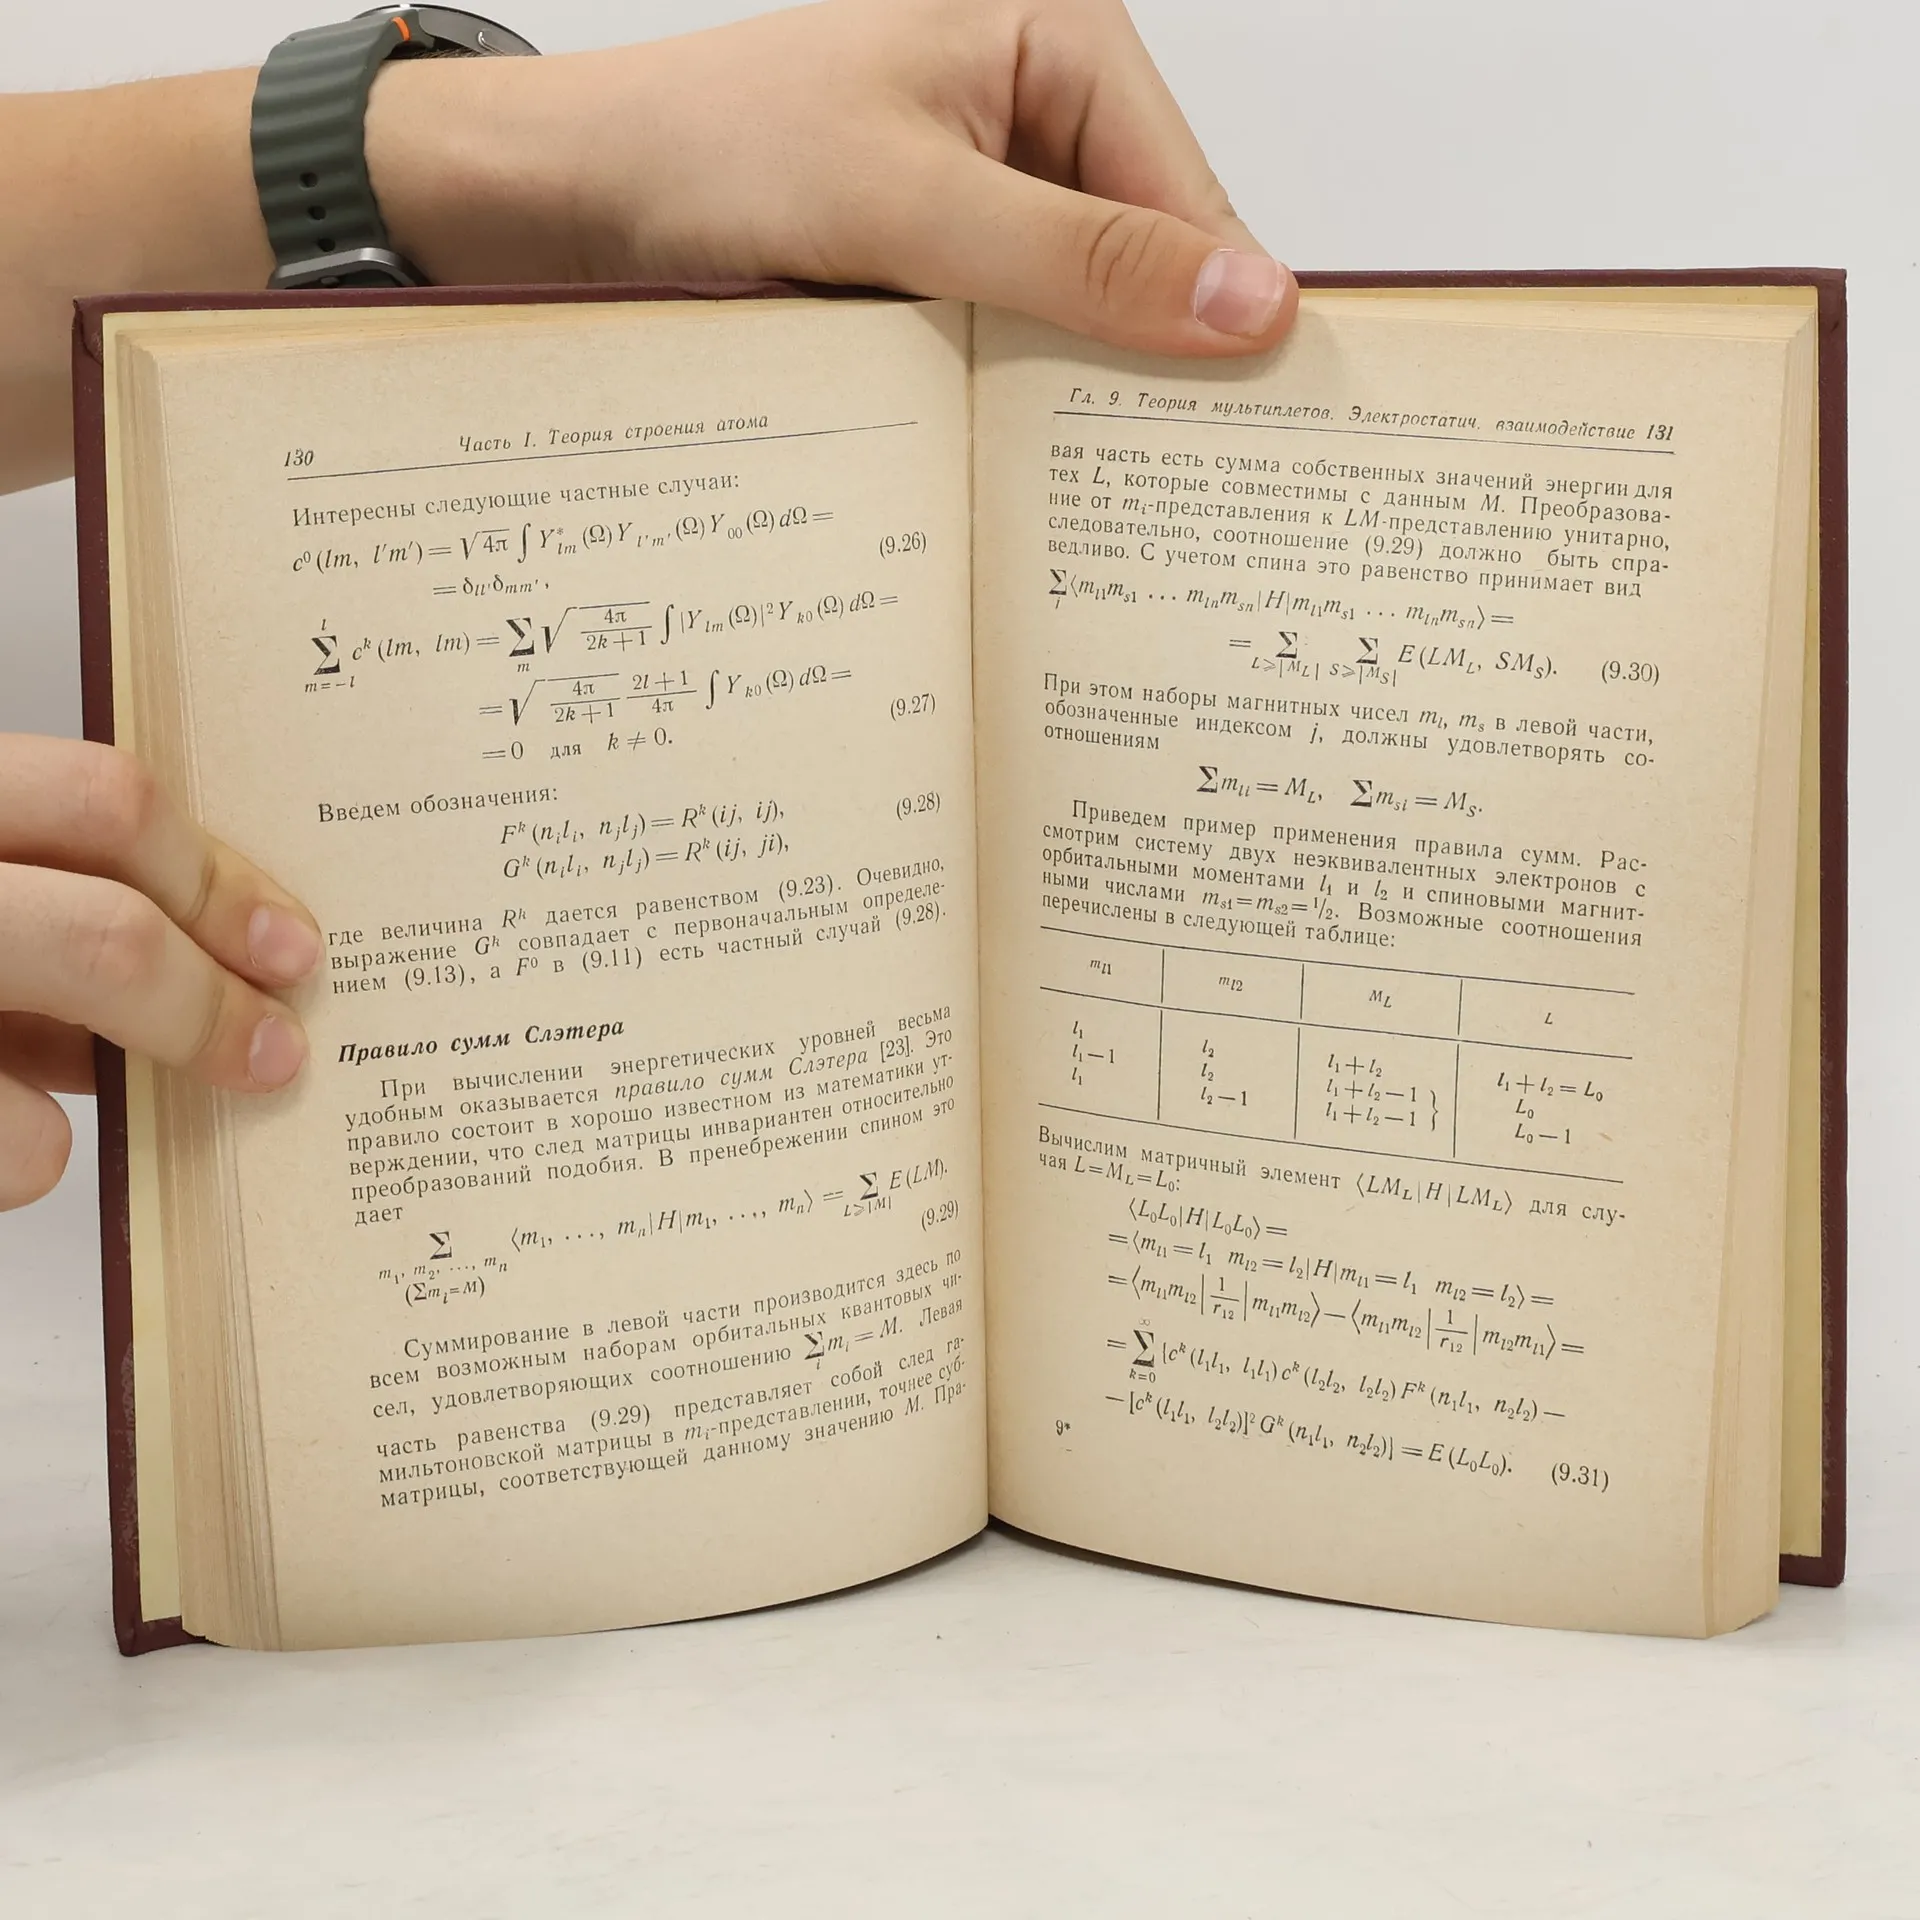 130
Часть I. Теория строения атома
Интересны следующие частные случаи:
c⁰ (lm, l′m′) = √4π ∫ Y*ₗₘ (Ω) Yₗ′ₘ′ (Ω) Y₀₀ (Ω) dΩ =
= δₗₗ′δₘₘ′, (9.26)
∑ₘ₌₋ₗˡ cᵏ (lm, lm) = ∑ₘ √(4π/(2k+1)) ∫ |Yₗₘ (Ω)|² Yₖ₀ (Ω) dΩ =
= √(4π/(2k+1)) (2l+1)/4π ∫ Yₖ₀ (Ω) dΩ =
= 0 для k ≠ 0. (9.27)
Введем обозначения:
Fᵏ (nᵢlᵢ, nⱼlⱼ) = Rᵏ (ij, ij), (9.28)
Gᵏ (nᵢlᵢ, nⱼlⱼ) = Rᵏ (ij, ji),
где величина Rᵏ дается равенством (9.23). Очевидно,
выражение Gᵏ совпадает с первоначальным определе-
нием (9.13), а F⁰ в (9.11) есть частный случай (9.28).
Правило сумм Слэтера
При вычислении энергетических уровней весьма
удобным оказывается правило сумм Слэтера [23]. Это
правило состоит в хорошо известном из математики ут-
верждении, что след матрицы инвариантен относительно
преобразований подобия. В пренебрежении спином это
дает
∑ ⟨m₁, ..., mₙ|H|m₁, ..., mₙ⟩ = ∑ E (LM).
m₁, m₂, ..., mₙ L⩾|M|
(∑mᵢ=M) (9.29)
Суммирование в левой части производится здесь по
всем возможным наборам орбитальных квантовых чи-
сел, удовлетворяющих соотношению ∑ᵢ mᵢ = M. Левая
часть равенства (9.29) представляет собой след га-
мильтоновской матрицы в mᵢ-представлении, точнее суб-
матрицы, соответствующей данному значению M. Пра-
Гл. 9. Теория мультиплетов. Электростатич. взаимодействие 131
вая часть есть сумма собственных значений энергии для
тех L, которые совместимы с данным M. Преобразова-
ние от mᵢ-представления к LM-представлению унитарно,
следовательно, соотношение (9.29) должно быть спра-
ведливо. С учетом спина это равенство принимает вид
∑ ⟨mₗ₁mₛ₁ ... mₗₙmₛₙ|H|mₗ₁mₛ₁ ... mₗₙmₛₙ⟩ =
= ∑ ∑ E (LM_L, SM_S). (9.30)
L⩾|M_L| S⩾|M_S|
При этом наборы магнитных чисел mₗ, mₛ в левой части,
обозначенные индексом j, должны удовлетворять со-
отношениям
∑mₗᵢ = M_L, ∑mₛᵢ = M_S.
Приведем пример применения правила сумм. Рас-
смотрим систему двух неэквивалентных электронов с
орбитальными моментами l₁ и l₂ и спиновыми магнит-
ными числами mₛ₁=mₛ₂=¹/₂. Возможные соотношения
перечислены в следующей таблице:
mₗ₁ mₗ₂ M_L L
l₁ l₂ l₁ + l₂ l₁ + l₂ = L₀
l₁ — 1 l₂ l₁ + l₂ — 1 } L₀
l₁ l₂ — 1 l₁ + l₂ — 1 } L₀ — 1
Вычислим матричный элемент ⟨LM_L|H|LM_L⟩ для слу-
чая L=M_L=L₀:
⟨L₀L₀|H|L₀L₀⟩ =
= ⟨mₗ₁ = l₁ mₗ₂ = l₂|H|mₗ₁ = l₁ mₗ₂ = l₂⟩ =
= ⟨mₗ₁mₗ₂|1/r₁₂|mₗ₁mₗ₂⟩ — ⟨mₗ₁mₗ₂|1/r₁₂|mₗ₂mₗ₁⟩ =
= ∑ₖ₌₀^∞ {cᵏ (l₁l₁, l₁l₁) cᵏ (l₂l₂, l₂l₂) Fᵏ (n₁l₁, n₂l₂) —
— [cᵏ (l₁l₁, l₂l₂)]² Gᵏ (n₁l₁, n₂l₂)} = E (L₀L₀). (9.31)
9*